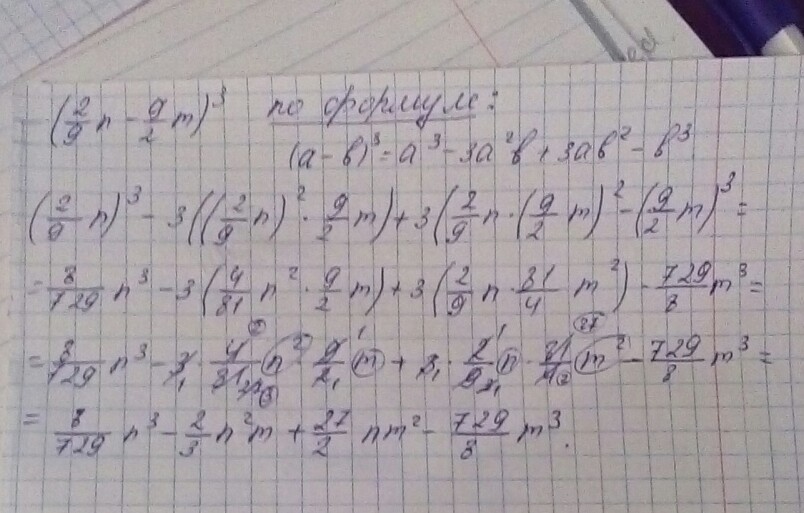 (2/9 n - 9/2 m)³ по формуле:
(a - b)³ = a³ - 3a²b + 3ab² - b³
(2/9 n)³ - 3((2/9 n)² · 9/2 m) + 3(2/9 n · (9/2 m)² - (9/2 m)³ =
= 8/729 n³ - 3(4/81 n² · 9/2 m) + 3(2/9 n · 81/4 m²) - 729/8 m³ =
= 8/729 n³ - 3 · 4/81 n² · 9/2 m + 3 · 2/9 n · 81/4 m² - 729/8 m³ =
= 8/729 n³ - 2/3 n²m + 27/2 nm² - 729/8 m³.